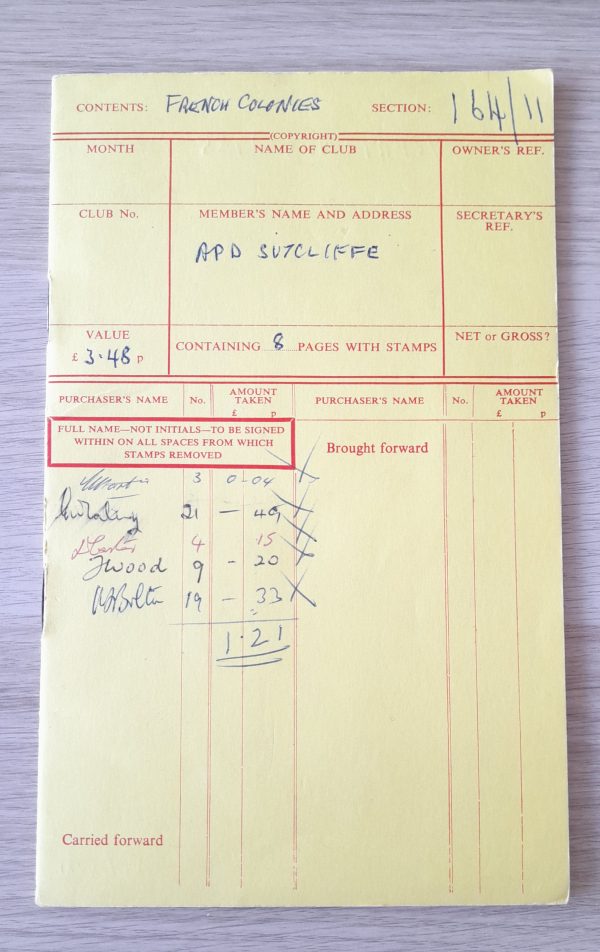 CONTENTS: FRENCH COLONIES SECTION: 164/11
(COPYRIGHT)
MONTH NAME OF CLUB OWNER'S REF.
CLUB No. MEMBER'S NAME AND ADDRESS SECRETARY'S REF.
APD SUTCLIFFE
VALUE
£ 3.48 p CONTAINING 8 PAGES WITH STAMPS NET or GROSS?
PURCHASER'S NAME No. AMOUNT TAKEN £ p PURCHASER'S NAME No. AMOUNT TAKEN £ p
FULL NAME—NOT INITIALS—TO BE SIGNED
WITHIN ON ALL SPACES FROM WHICH
STAMPS REMOVED
Brought forward
3 0-04
21 — 49
4 15
Wood 9 - 20
19 — 33
1.21
Carried forward